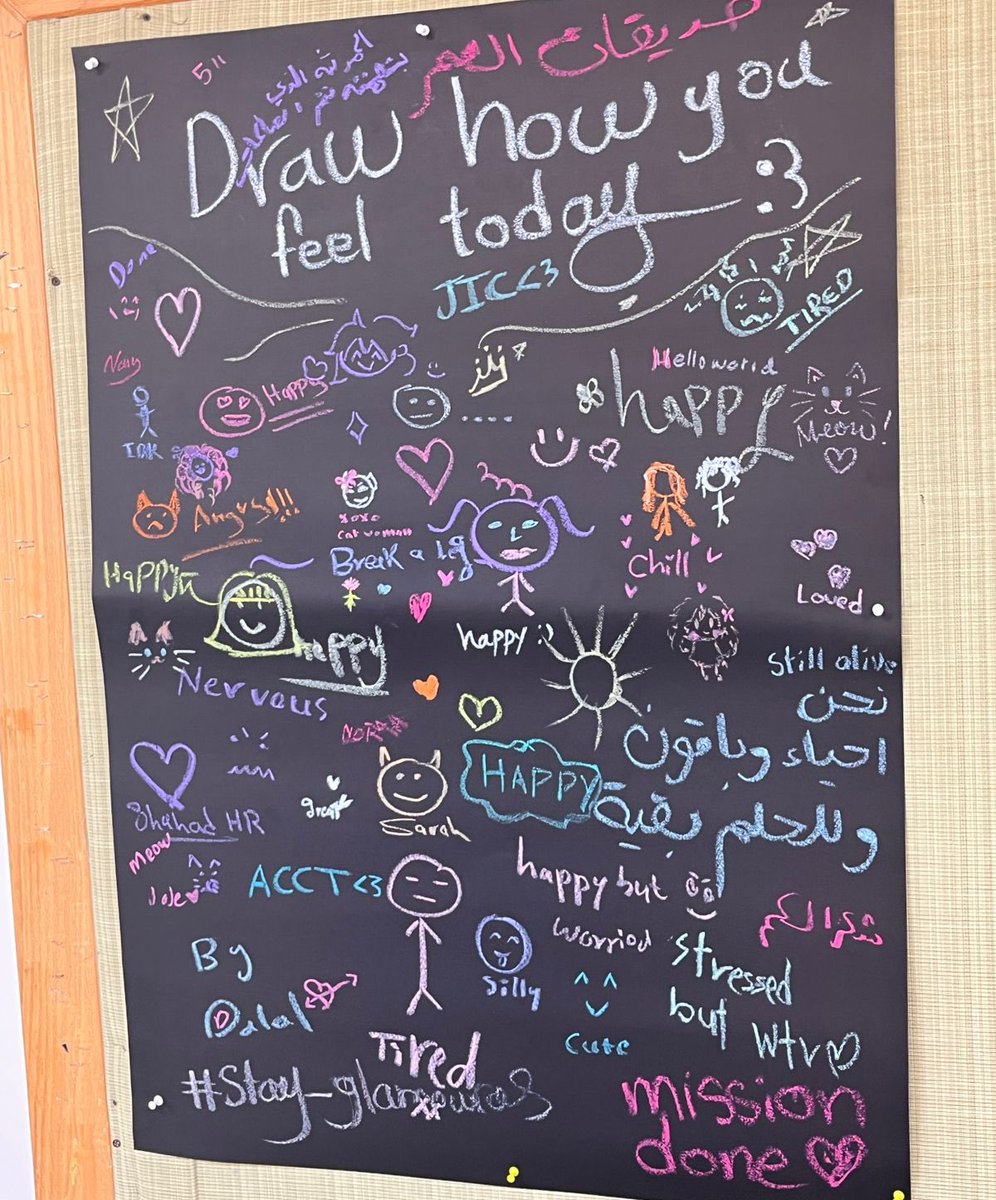 صديقات العمر
511
Draw how you
feel today :3
Done
JIC<3
TIRED
Hello world
Happy
happy
Meow!
Angry!!!
xoxo
cat woman
Break a leg
chill
Loved
HaPPy
happy
happy :)
still alive
Nervous
نحن
احياء وباقون
وللحلم بقية
NORA
HAPPY
great
Sarah
Shahad HR
meow
ACCT<3
happy but
worried
شكرا لكم
By
Dalal
Silly
stressed
but
wtv
cute
Tired
#Stay_glamorous
mission
done